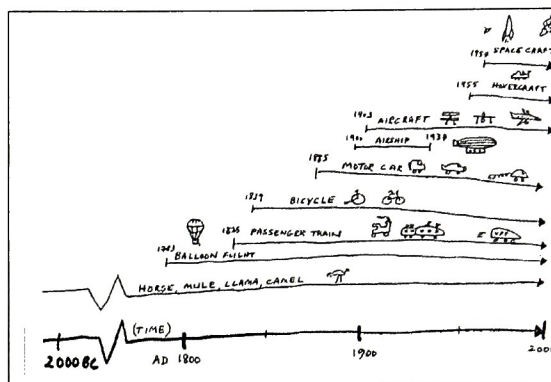 1957 SPACE CRAFT
1955 HOVERCRAFT
1903 AIRCRAFT
1900 AIRSHIP 1938
1885 MOTOR CAR
1839 BICYCLE
1825 PASSENGER TRAIN
1783 BALLOON FLIGHT
HORSE, MULE, LLAMA, CAMEL
(TIME)
2000 BC AD 1800 1900 2000